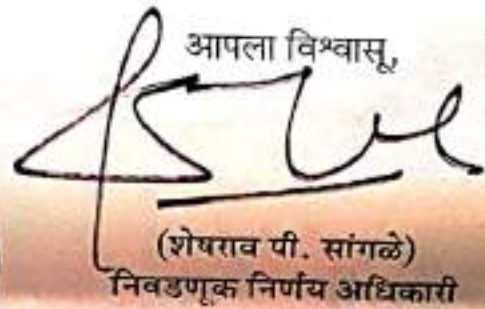 आपला विश्वासू,
(शेषराव पी. सांगळे)
निवडणूक निर्णय अधिकारी